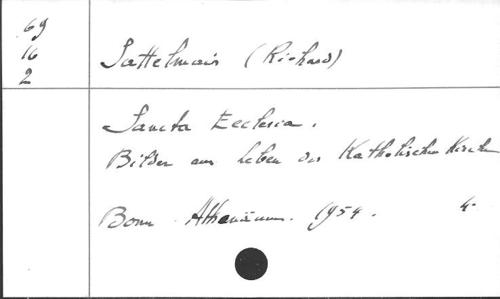 69
16
2
Sattelmair (Richard)
Sancta Ecclesia.
Bilder aus Leben der Katholischen Kirche
Bonn Athenäum. 1954. 4º